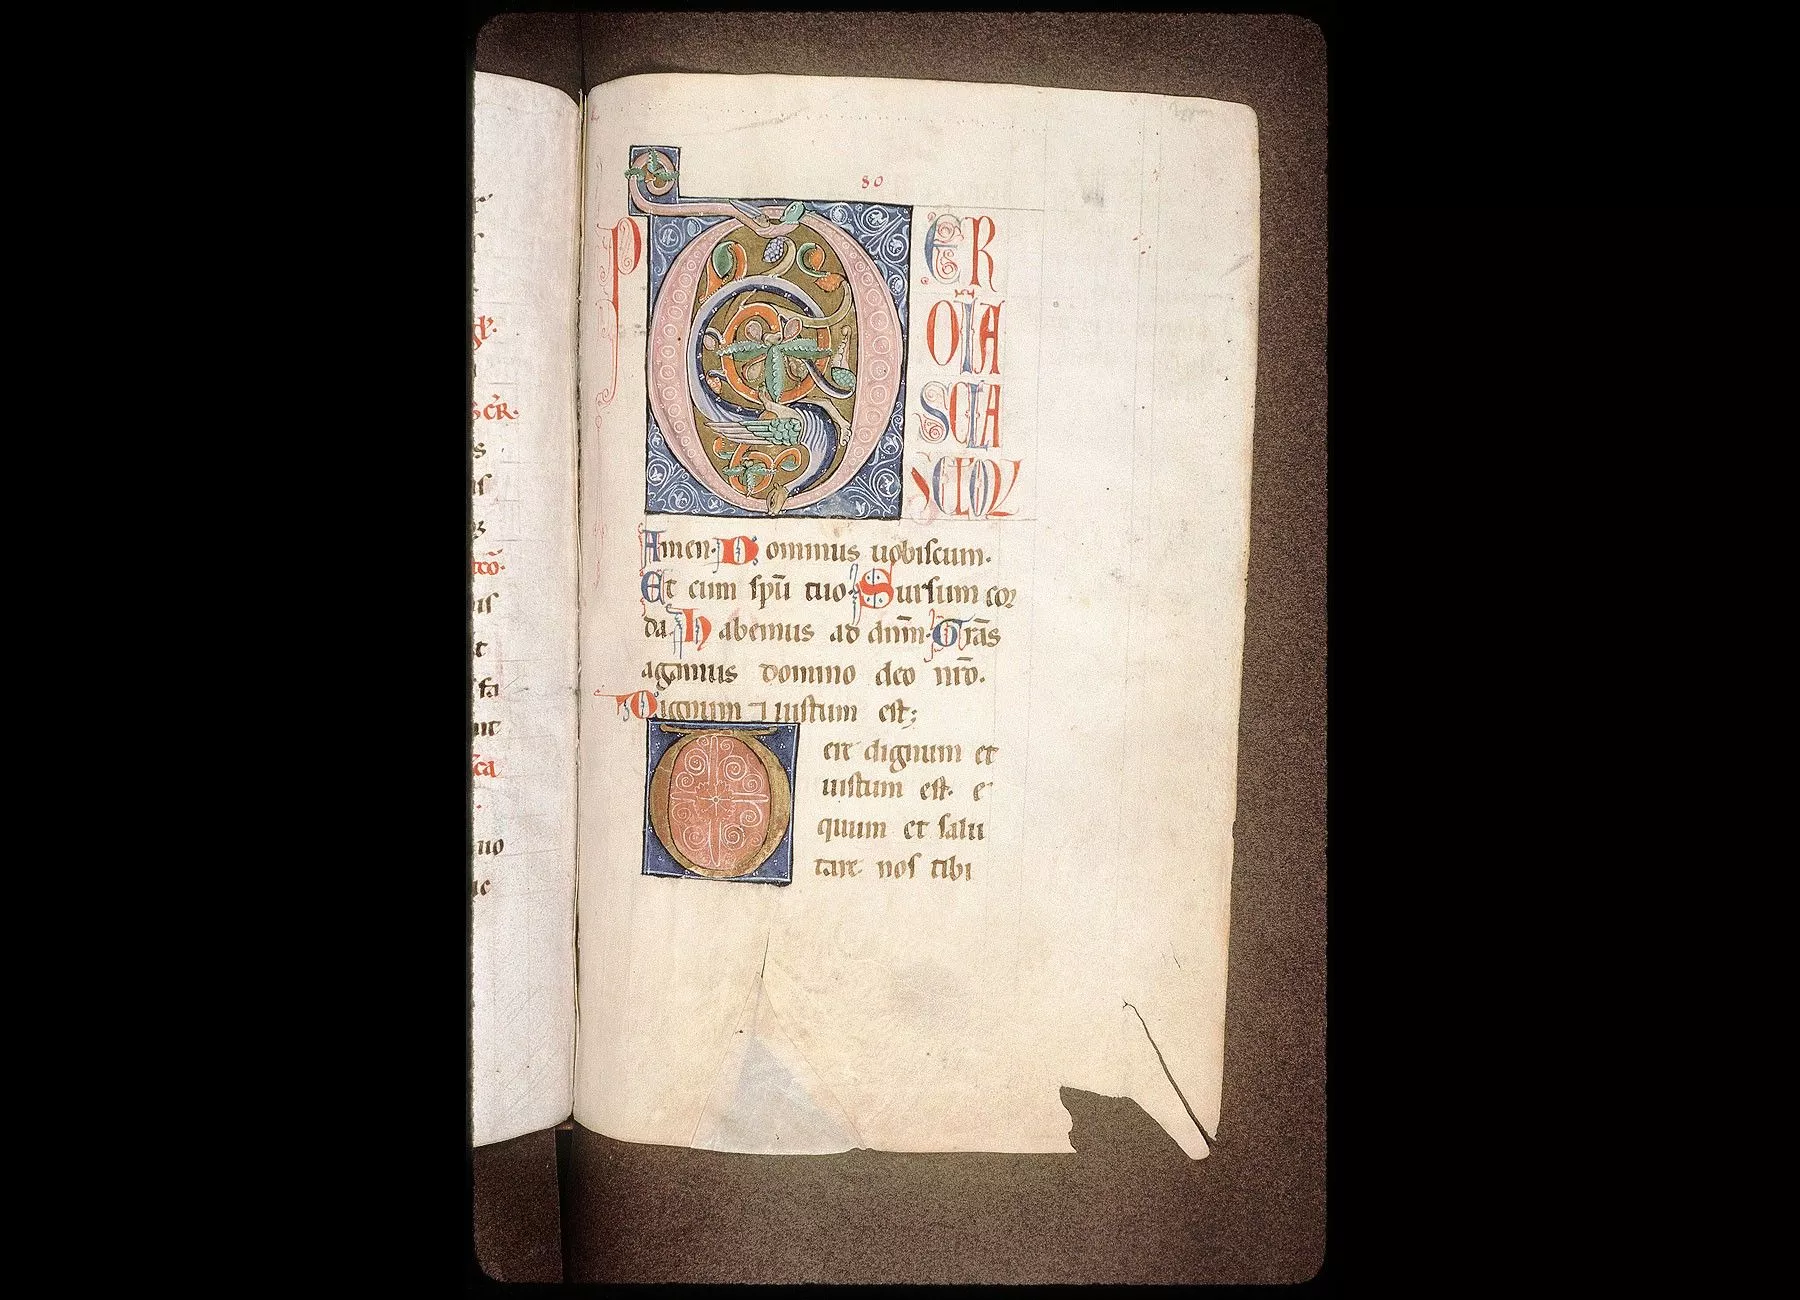 80
P ER
OĪA
SCLA
SCLOꝜ
Amen. Dominus uobiscum.
Et cum spū tuo. Sursum cor
da. Habemus ad dn̄m. Grās
agamus domino deo nr̄o.
Dignum ⁊ iustum est;
ere dignum et
iustum est. e
quum et salu
tare. nos tibi